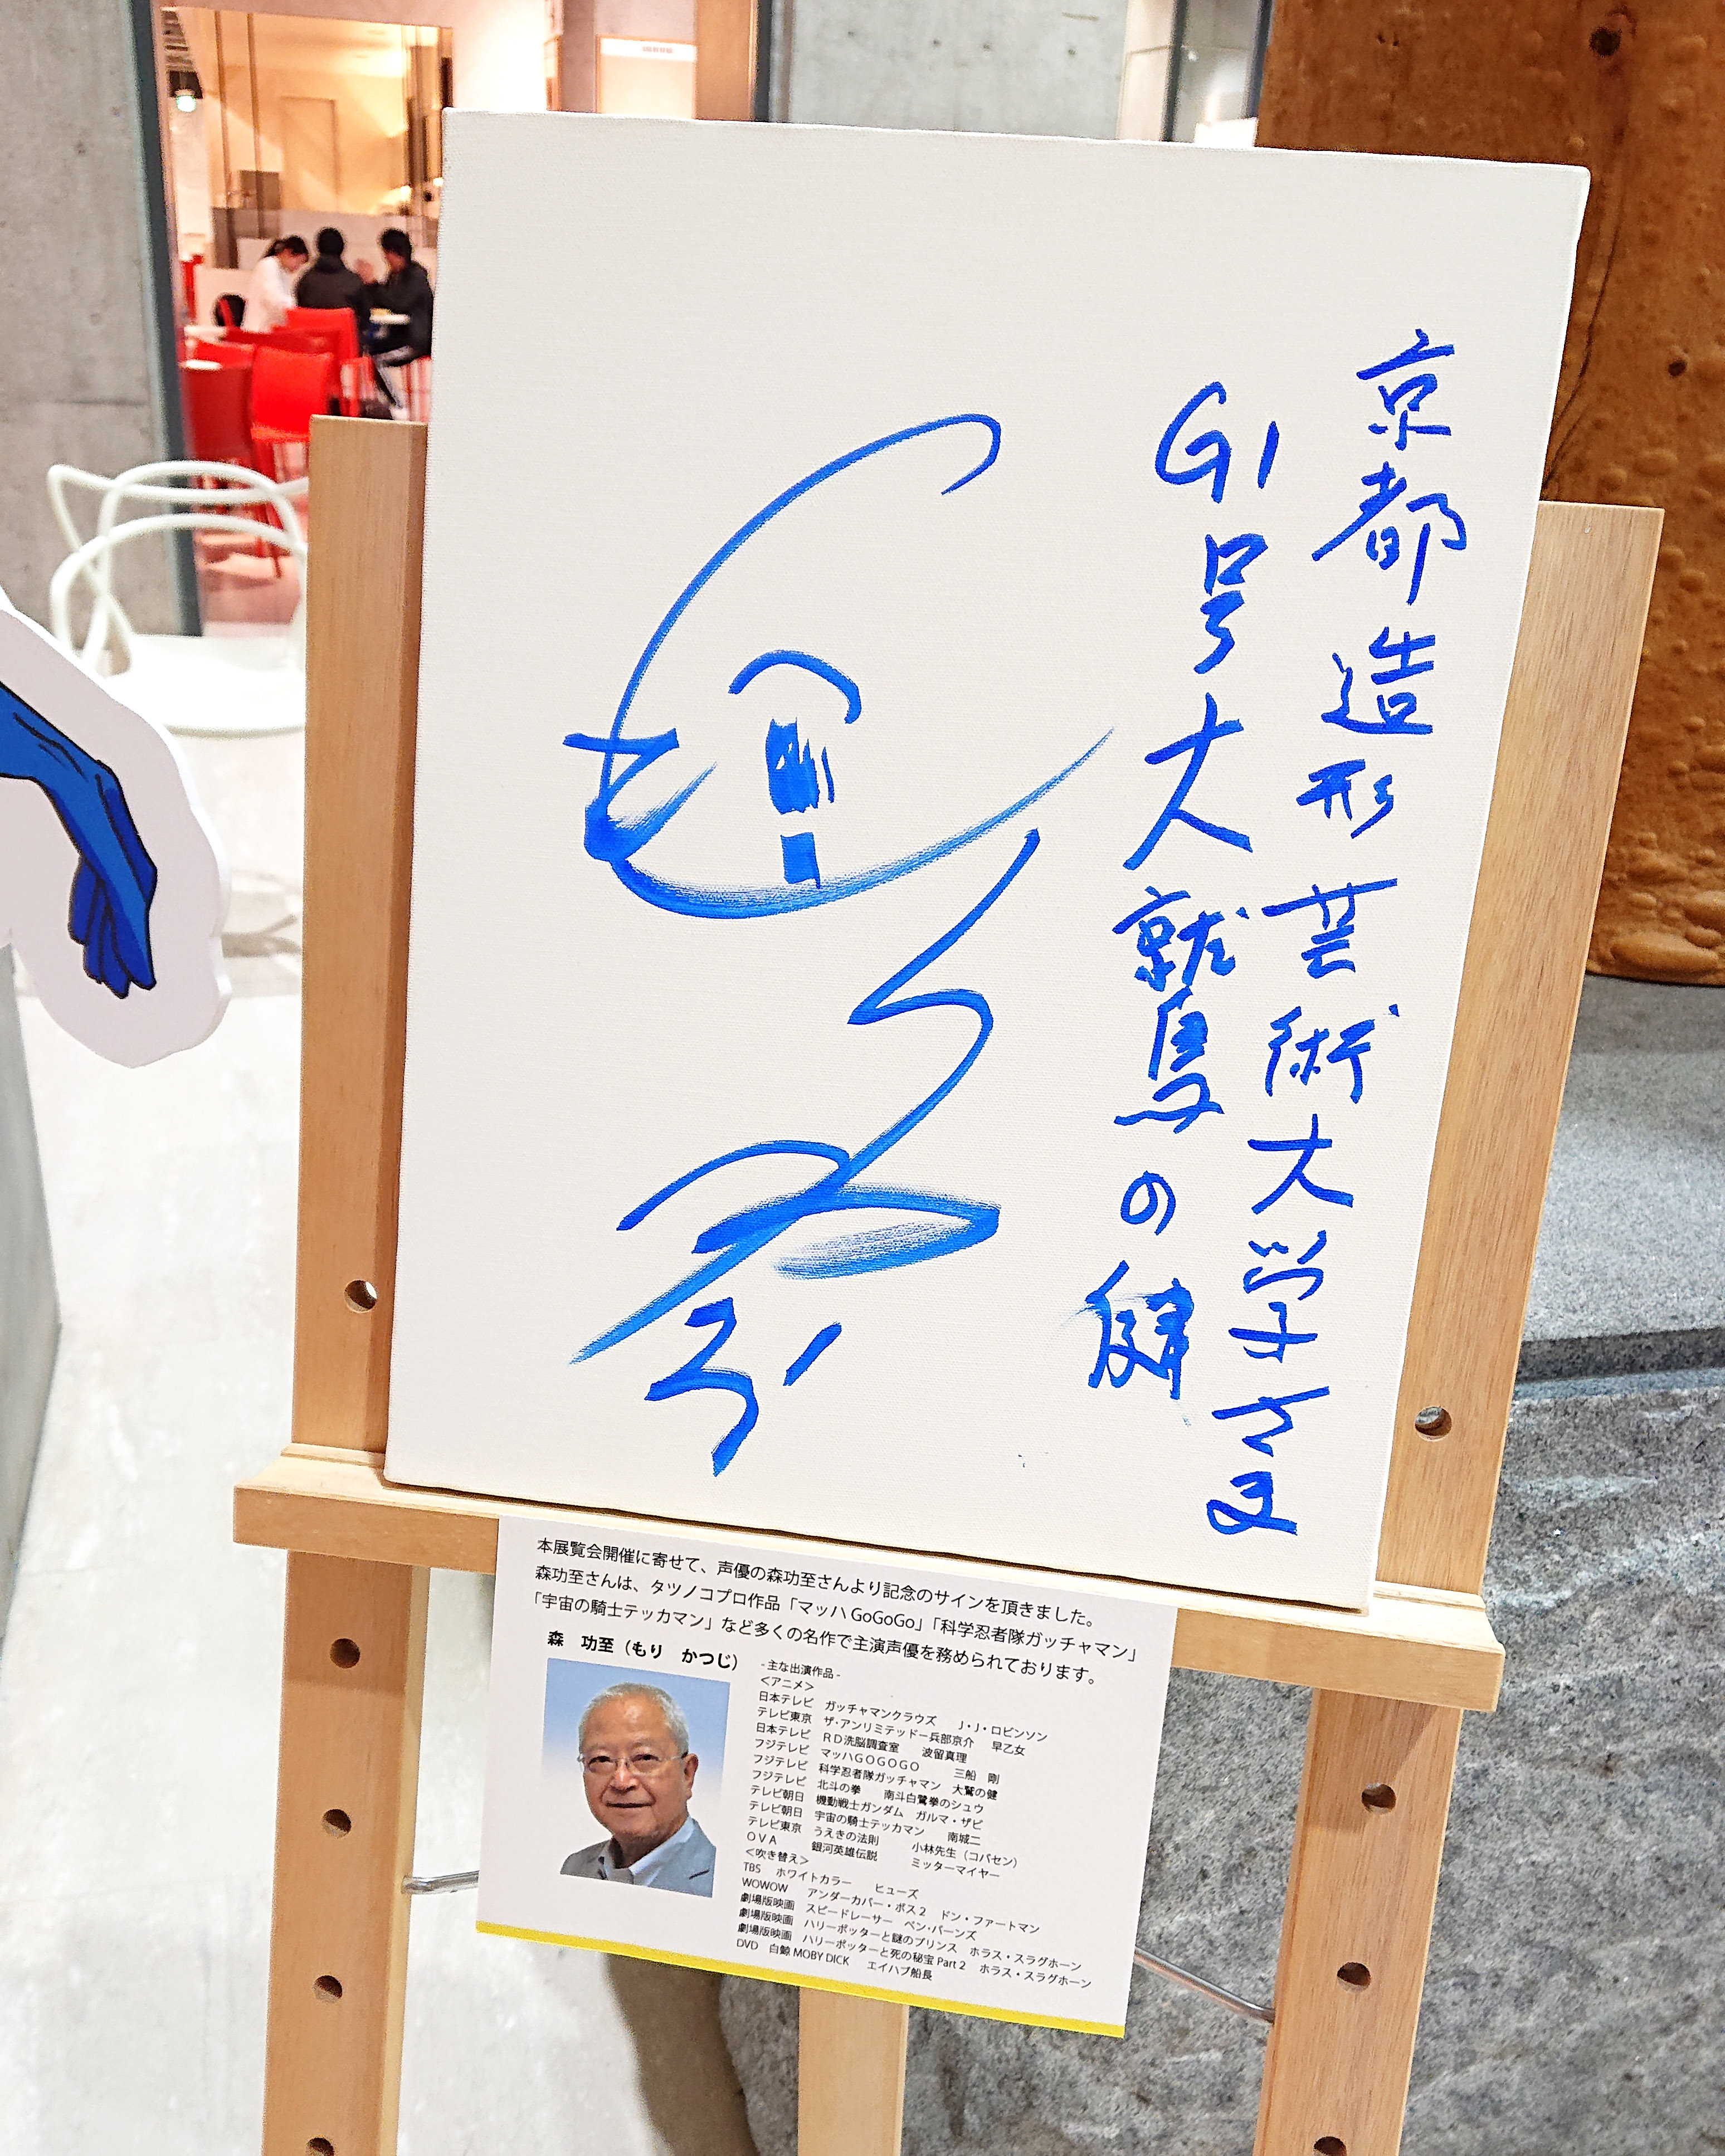 京都造形芸術大学さま
G1号大鷲の健
本展覧会開催に寄せて、声優の森功至さんより記念のサインを頂きました。
森功至さんは、タツノコプロ作品「マッハGoGoGo」「科学忍者隊ガッチャマン」
「宇宙の騎士テッカマン」など多くの名作で主演声優を務められております。
森　功至（もり　かつじ）
-主な出演作品-
＜アニメ＞
日本テレビ　ガッチャマンクラウズ　J・J・ロビンソン
テレビ東京　ザ・アンリミテッドー兵部京介　早乙女
日本テレビ　ＲＤ洗脳調査室　波留真理
フジテレビ　マッハＧＯＧＯＧＯ　三船　剛
フジテレビ　科学忍者隊ガッチャマン　大鷲の健
フジテレビ　北斗の拳　南斗白鷺拳のシュウ
テレビ朝日　機動戦士ガンダム　ガルマ・ザビ
テレビ朝日　宇宙の騎士テッカマン　南城二
テレビ東京　うえきの法則　小林先生（コバセン）
ＯＶＡ　銀河英雄伝説　ミッターマイヤー
＜吹き替え＞
TBS　ホワイトカラー　ヒューズ
WOWOW　アンダーカバー・ボス２　ドン・ファートマン
劇場版映画　スピードレーサー　ベン・バーンズ
劇場版映画　ハリーポッターと謎のプリンス　ホラス・スラグホーン
劇場版映画　ハリーポッターと死の秘宝 Part 2　ホラス・スラグホーン
DVD　白鯨 MOBY DICK　エイハブ船長